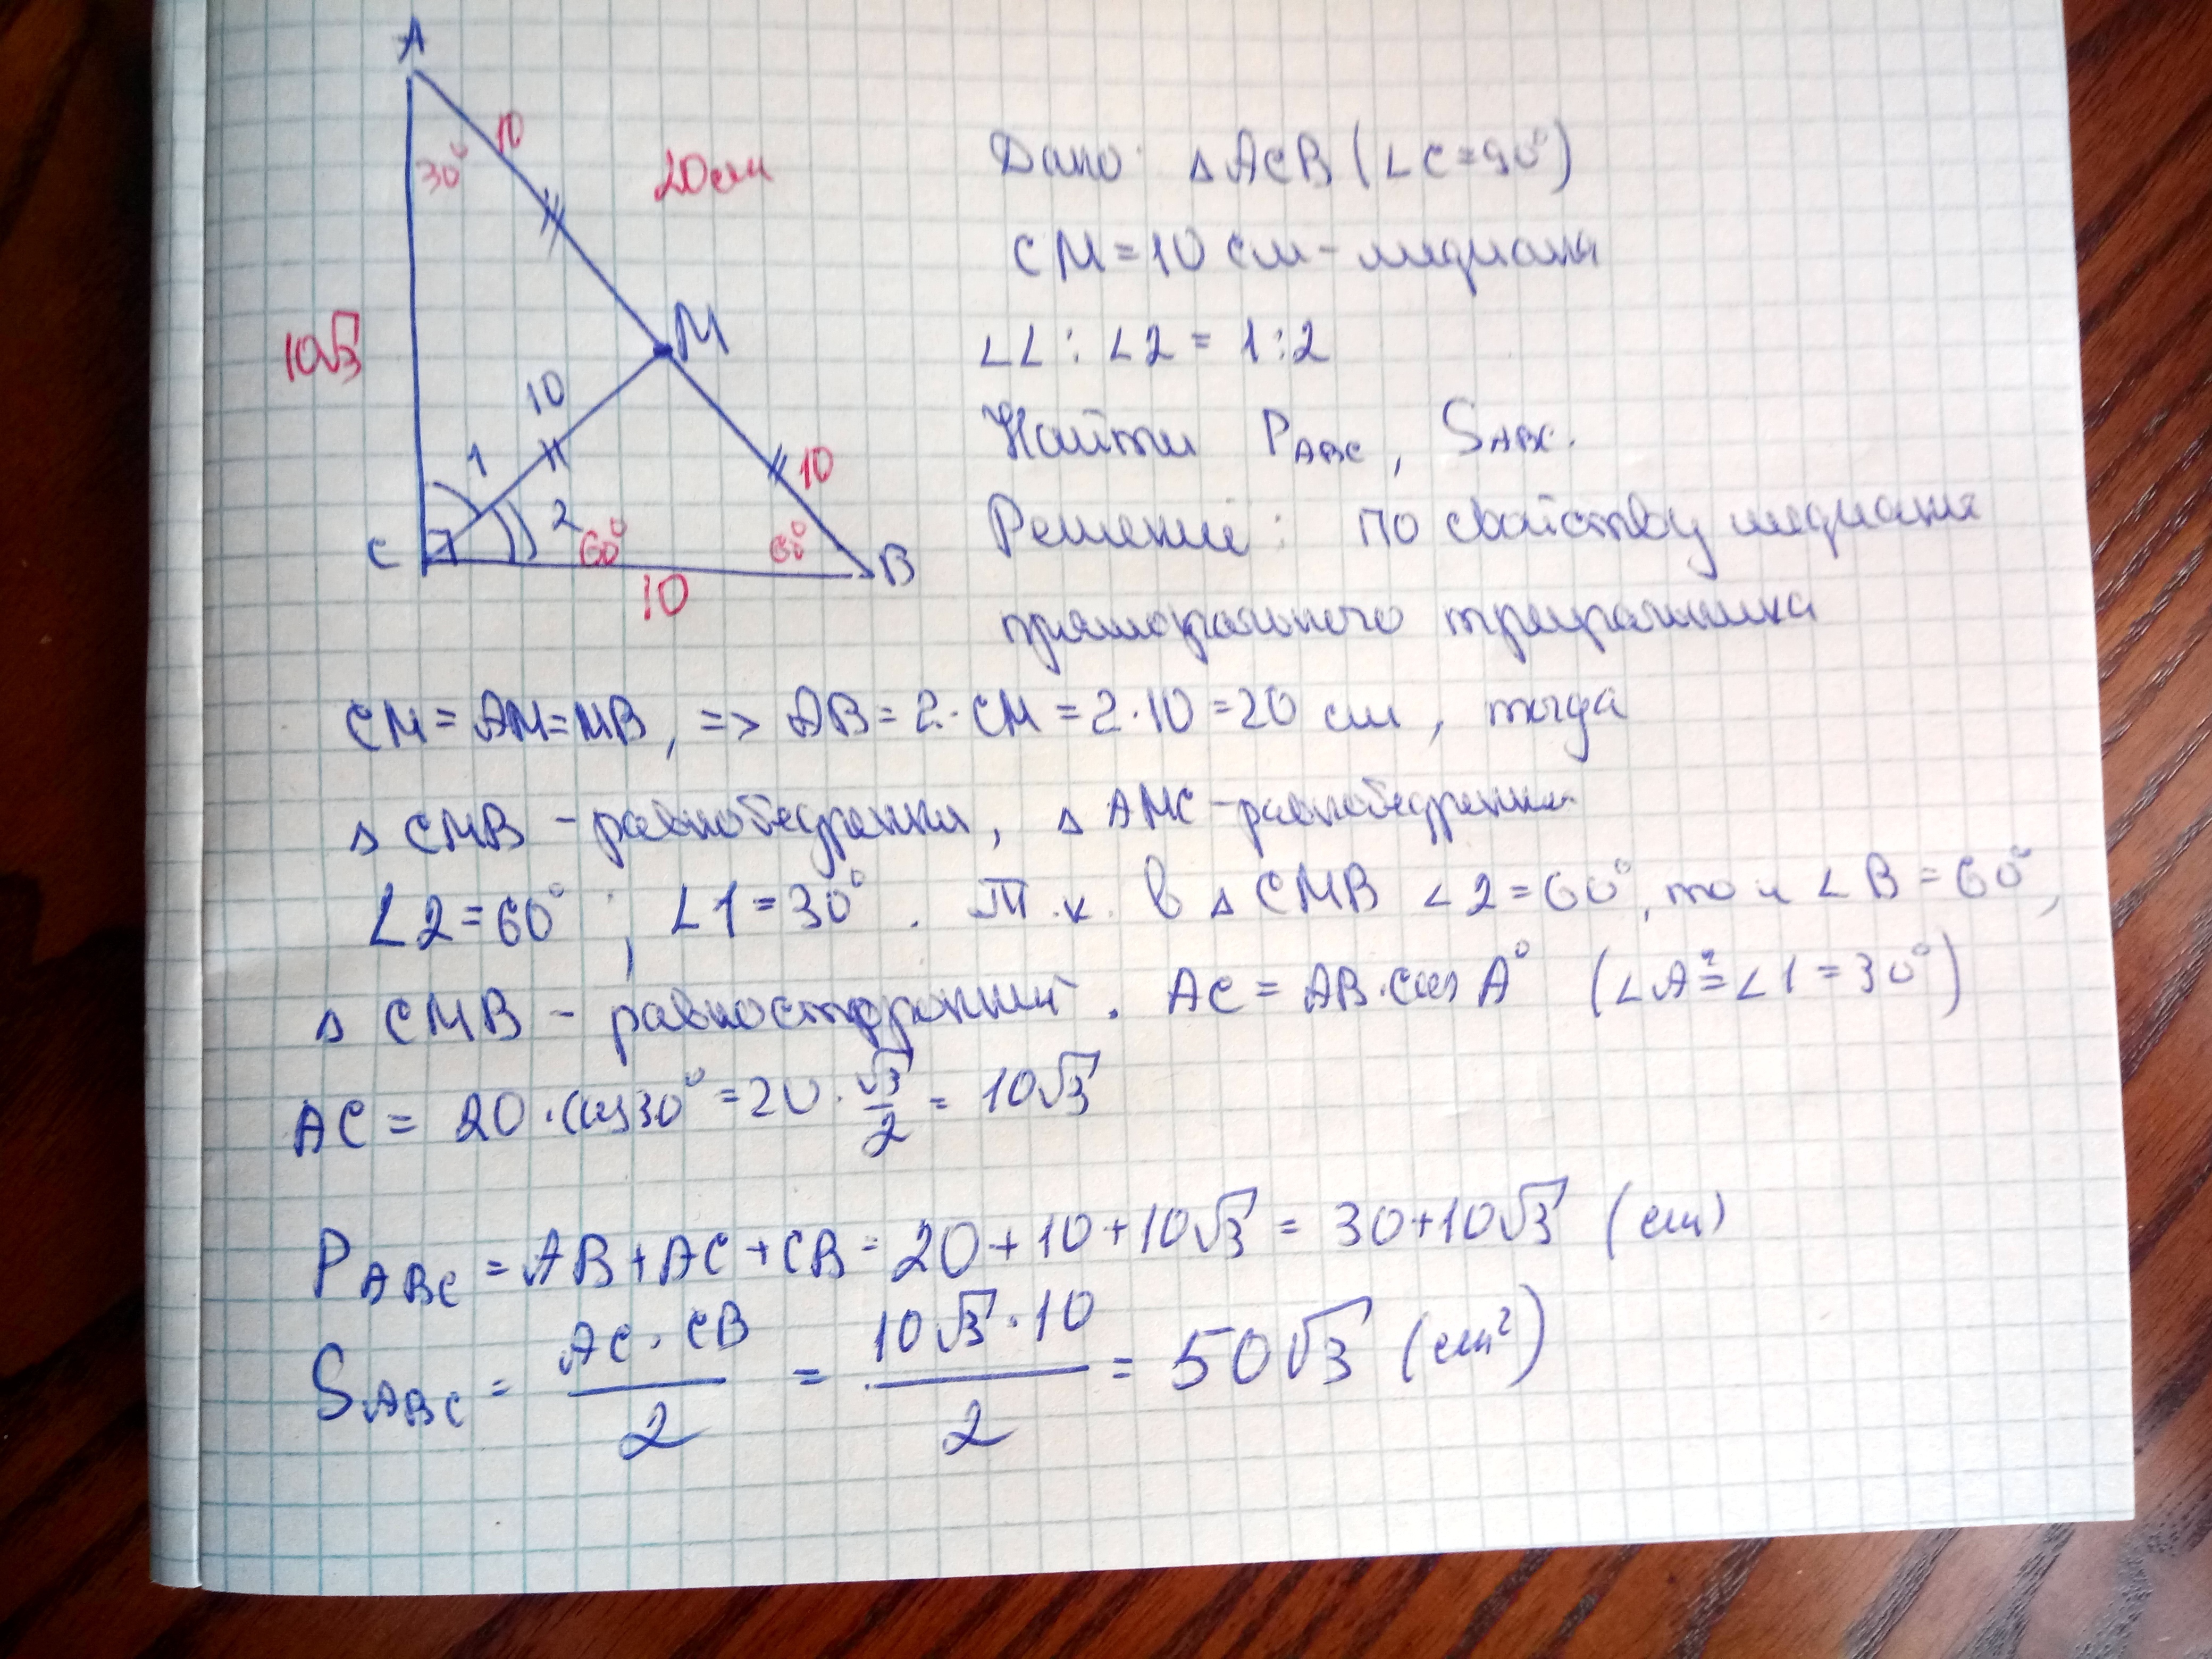 A
30°
10
20 см
10√3
M
10
1
2
60°
10
60°
C
10
B
Дано: △ACB (∠C=90°)
CM = 10 см - медиана
∠∠ : ∠2 = 1:2
Найти P ABC, S ABC.
Решение: По свойству медианы
прямоугольного треугольника
CM = AM = MB, => AB = 2·CM = 2·10 = 20 см, тогда
△ CMB - равнобедренный, △ AMC - равнобедренный
∠2 = 60°; ∠1 = 30°. Т.к. в △ CMB ∠2 = 60°, то и ∠B = 60°,
△ CMB - равносторонний. AC = AB·cos A° (∠A = ∠1 = 30°)
AC = 20·cos30° = 20·√3/2 = 10√3
P ABC = AB + AC + CB = 20 + 10 + 10√3 = 30 + 10√3 (см)
S ABC = AC·CB/2 = 10√3·10/2 = 50√3 (см²)